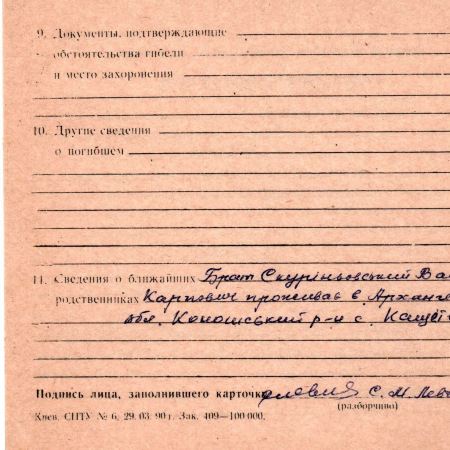 9. Документы, подтверждающие
обстоятельства гибели
и место захоронения
10. Другие сведения
о погибшем
11. Сведения о ближайших Брат Скуріньовський Ва
родственниках Карпович проживає в Арханге
обл. Коношський р-н с.
Подпись лица, заполнившего карточку С. М. Лев
(разборчиво)
Киев. СПТУ № 6. 29. 03. 90 г. Зак. 409—100 000.